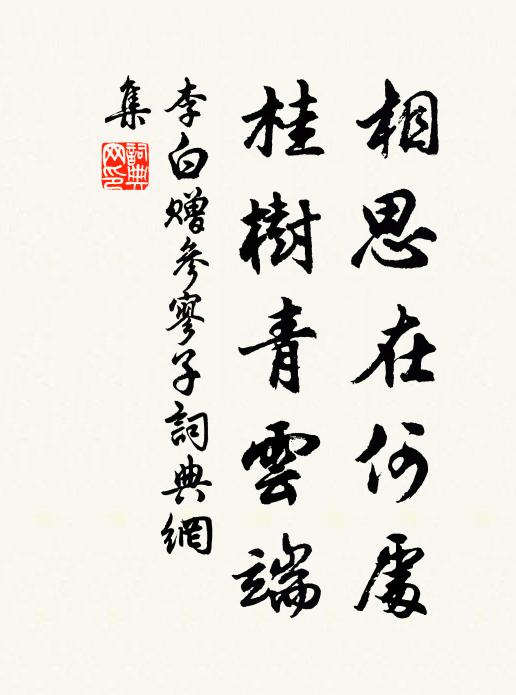 相思在何處
桂樹青雲端
李白贈參寥子詞典網
集
詞典
网印